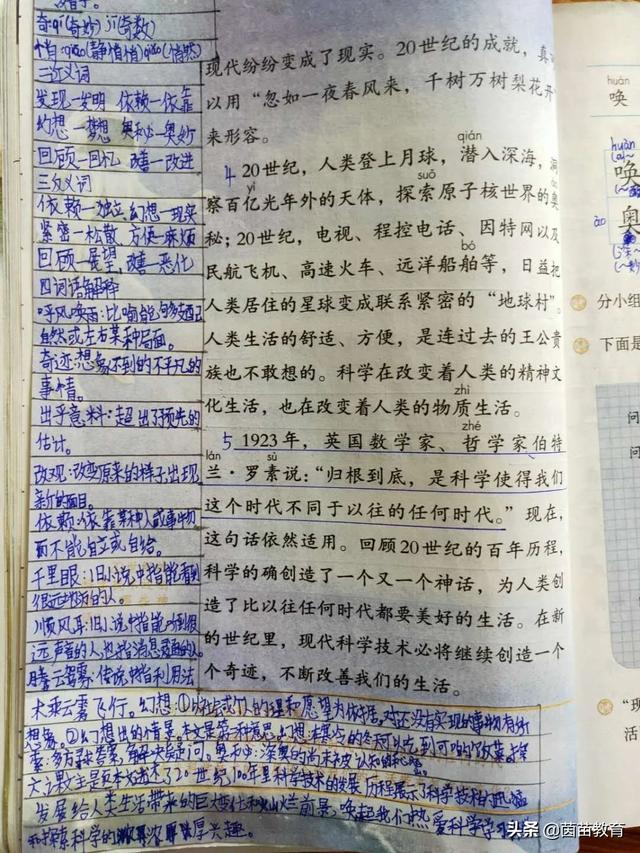 奇:qí(奇妙) jī(奇数)
悄:qiāo(静悄悄)qiǎo(悄然)
三近义词
发现—发明 依赖—依靠
幻想—梦想 奥秘—奥妙
回顾—回忆 改善—改进
三反义词
依赖—独立 幻想—现实
紧密—松散 方便—麻烦
回顾—展望 改善—恶化
四词语解释
呼风唤雨:比喻能够支配
自然或左右某种局面。
奇迹:想象不到的不平凡的
事情。
出乎意料:超出了预先的
估计。
改观:改变原来的样子,出现
新的面目。
依赖:依靠某种人或事物
而不能自立或自给。
千里眼:旧小说中指能看到
很远地方的人。
顺风耳:旧小说中指能听到很
远声音的人也指消息灵通的人。
腾云驾雾:传说中指利用法
术乘云雾飞行。幻想:①以社会或个人的理想和愿望为依据,对还没有实现的事物有所
想象。②幻想出的情景。
案:多方寻求答案,解决疑问。奥秘:深奥的尚未被认知的秘密。
六课文主题:本文讲述了20世纪100年里科学技术的发展历程,展示了科学技术的迅猛
发展给人类生活带来的巨大变化和灿烂前景,唤起我们热爱科学学习
和探索科学的浓厚兴趣。
现代纷纷变成了现实。20世纪的成就,真
以用“忽如一夜春风来,千树万树梨花开
来形容。
qián
4 20世纪,人类登上月球,潜入深海,洞
yì suǒ
察百亿光年外的天体,探索原子核世界的奥
秘;20世纪,电视、程控电话、因特网以及
bó
民航飞机、高速火车、远洋船舶等,日益把
人类居住的星球变成联系紧密的“地球村”。
人类生活的舒适、方便,是连过去的王公贵
族也不敢想的。科学在改变着人类的精神文
zhì
化生活,也在改变着人类的物质生活。
zhé
5 1923年,英国数学家、哲学家伯特
lán sù
兰·罗素说:“归根到底,是科学使得我们
这个时代不同于以往的任何时代。”现在,
这句话依然适用。回顾20世纪的百年历程,
科学的确创造了一个又一个神话,为人类创
造了比以往任何时代都要美好的生活。在新
的世纪里,现代科学技术必将继续创造一个
个奇迹,不断改善我们的生活。
huàn
唤
huàn
唤
奥
分小组
下面是
问
问
“现
头条 @茵苗教育